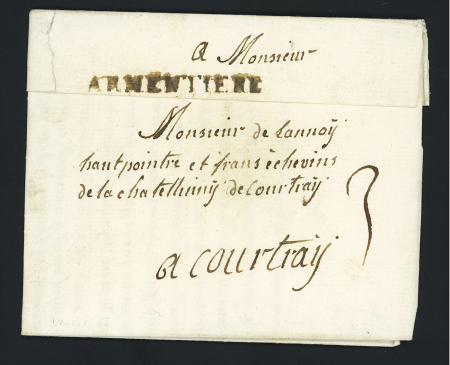 a Monsieur
ARMENTIERE
Monsieur de Lannoÿ
hautpointre et frans êchevins
de la chatelliniÿ de Courtraÿ
3
a courtraÿ